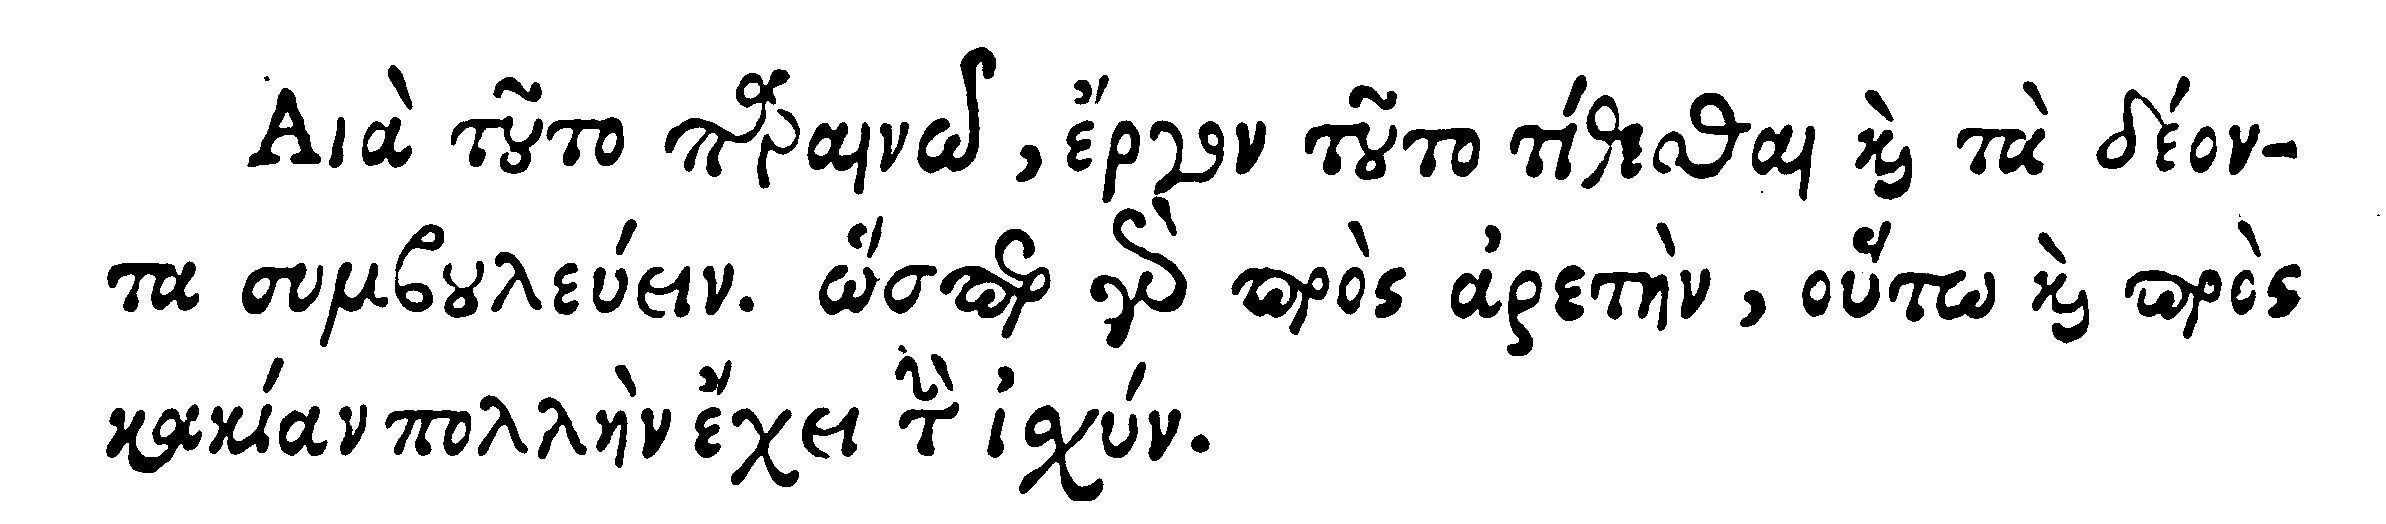 Διὰ τοῦτο παραινῶ, ἔργον τοῦτο τίθεσθαι καὶ τὰ δέον-
τα συμβουλεύειν. ὥσπερ γὰρ πρὸς ἀρετὴν, οὕτω καὶ πρὸς
κακίαν πολλὴν ἔχει τὴν ἰσχύν.